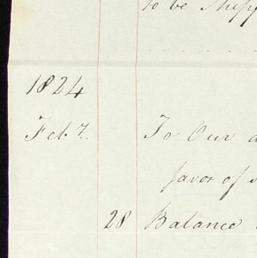 to be Shipp
1824
Feb 7. To Our a
favor of s
28 Balance